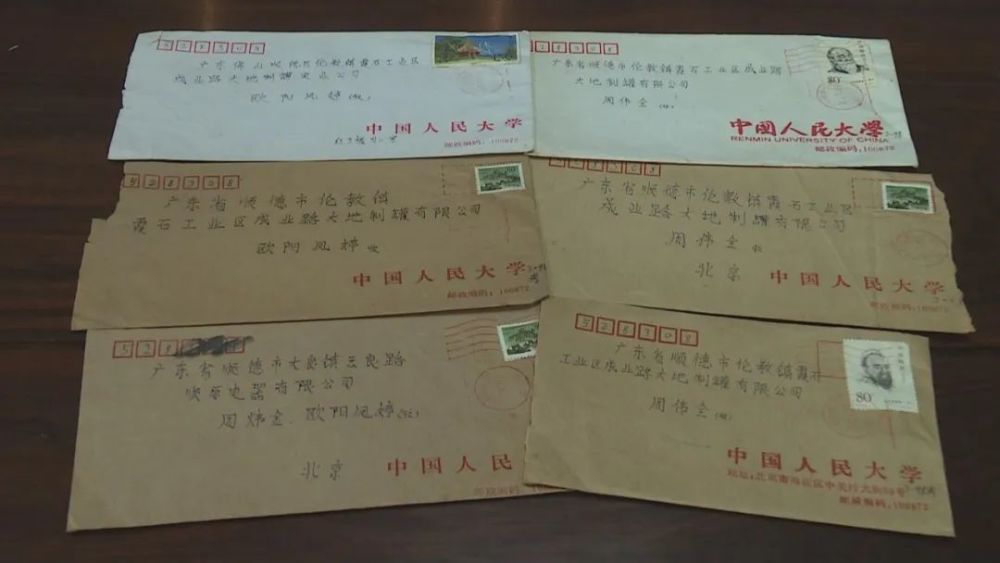 528308
广东佛山顺德区伦教镇霞石工业区
成业路大地制罐实业公司
欧阳凤婷(收)
中国人民大学
邮政编码:100872
528308
广东省顺德市伦教镇霞石工业区成业路
大地制罐有限公司
周伟全(收)
80
中国人民大学
RENMIN UNIVERSITY OF CHINA
邮政编码:100872
528308
广东省顺德市伦教镇
霞石工业区成业路大地制罐有限公司
欧阳凤婷 收
中国人民大学
邮政编码:100872
528308
广东省顺德市伦教镇霞石工业区
成业路大地制罐有限公司
周伟全 收
北京 中国人民大学
邮政编码:100872
528
广东省顺德市大良镇三良路
有限公司
周炜全、欧阳凤婷(收)
北京 中国人民
邮政编码:1008
528308
广东省顺德市伦教镇霞石
工业区成业路大地制罐有限公司
周伟全(收)
80
中国人民大学
地址:北京市海淀区中关村大街59号
邮政编码:100872